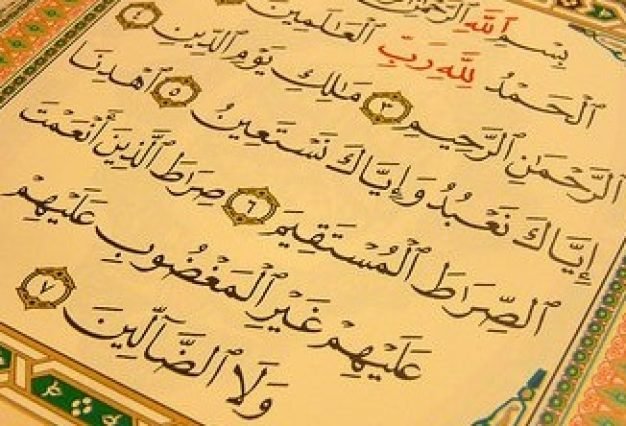 بِسْمِ ٱللَّهِ ٱلرَّحْمَٰنِ
ٱلْحَمْدُ لِلَّهِ رَبِّ ٱلْعَٰلَمِينَ
ٱلرَّحْمَٰنِ ٱلرَّحِيمِ ٣ مَٰلِكِ يَوْمِ ٱلدِّينِ ٤
إِيَّاكَ نَعْبُدُ وَإِيَّاكَ نَسْتَعِينُ ٥ ٱهْدِنَا
ٱلصِّرَاطَ ٱلْمُسْتَقِيمَ ٦ صِرَاطَ ٱلَّذِينَ أَنْعَمْتَ
عَلَيْهِمْ غَيْرِ ٱلْمَغْضُوبِ عَلَيْهِمْ
وَلَا ٱلضَّآلِّينَ ٧